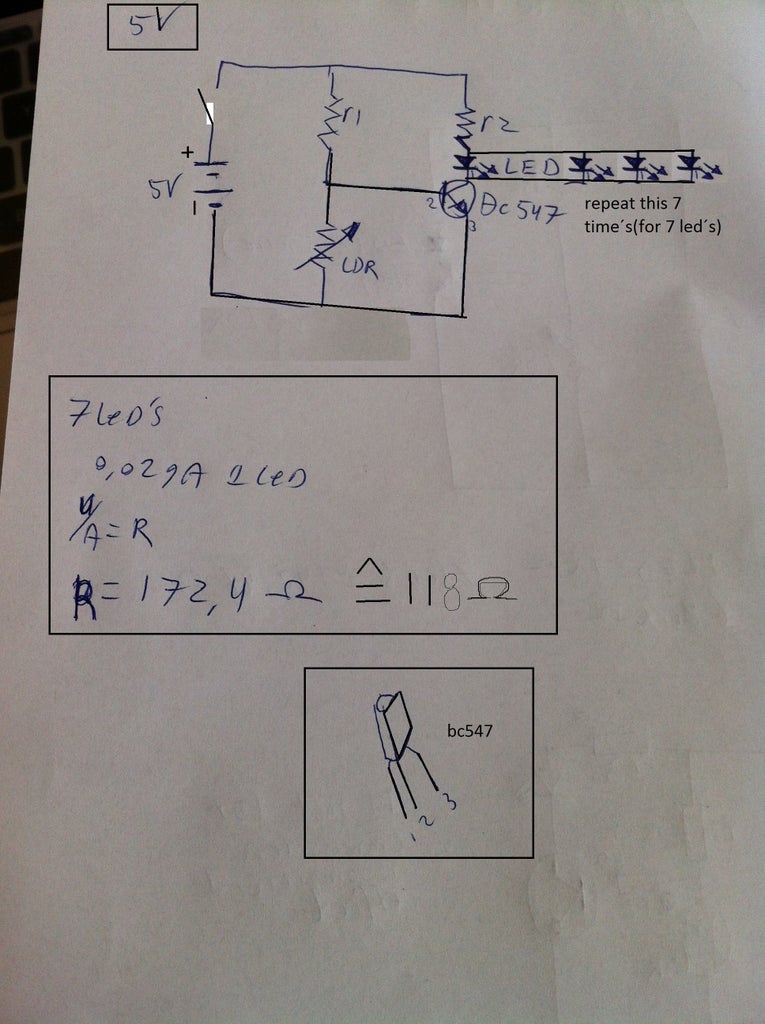 5V
r1
r2
LED
+
5V
2
Bc 547
3
LDR
repeat this 7
time´s(for 7 led´s)
7 LeD's
0,029A 1 LeD
U/A = R
R = 172,4 Ω ≙ 118 Ω
bc547
1 2 3